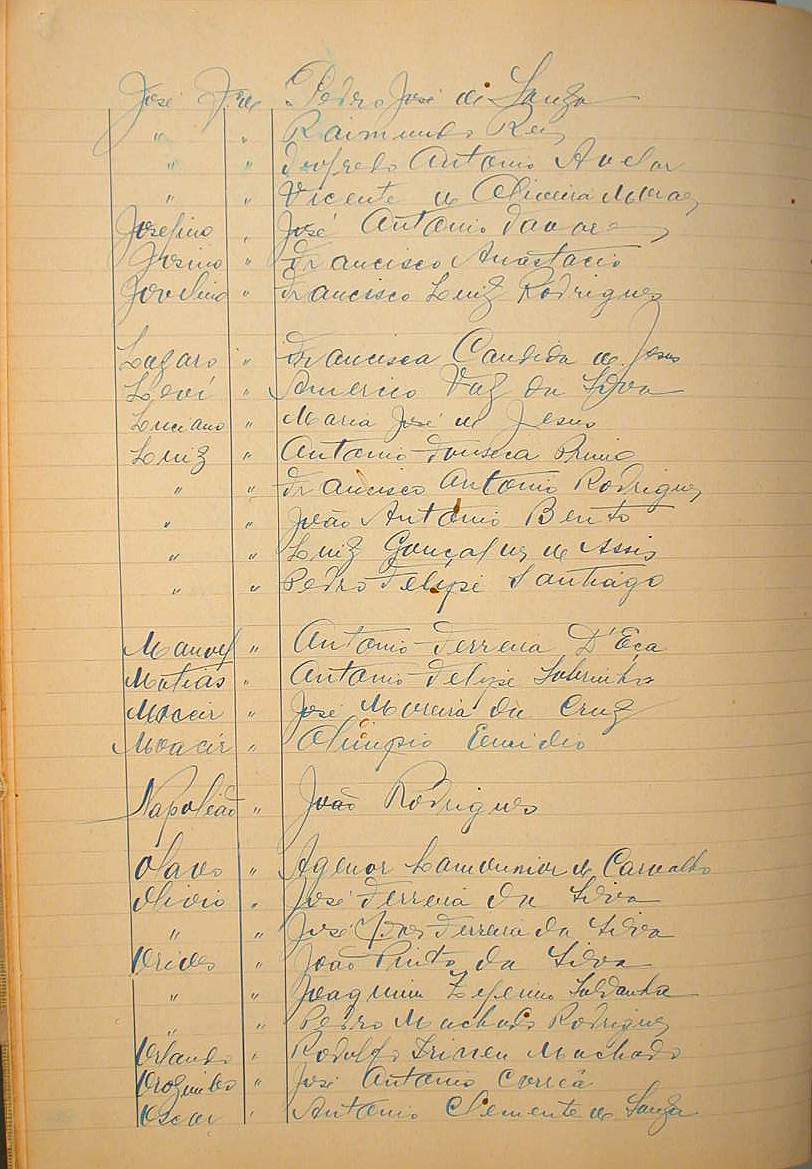 José Fº de Pedro José de Souza
" " Raimundo Reis
" " Godofredo Antonio Avelar
" " Vicente de Oliveira Moraes
Josefino " José Antonio Tavares
Josino " Francisco Anastacio
Jovelino " Francisco Luiz Rodrigues
Lazaro " Francisca Candida de Jesus
Levi " Americo Vaz da Silva
Luciano " Maria José de Jesus
Luiz " Antonio Fonseca Primo
" " Francisco Antonio Rodrigues
" " João Antonio Bento
" " Luiz Gonçalves de Assis
" " Pedro Felipe Santiago
Manoel " Antonio Ferreira D'Eça
Matias " Antonio Felipe Sobrinho
Moacir " José Moreira da Cruz
Moacir " Olimpio Emidio
Napoleão " João Rodrigues
Olavo " Agenor Lamounier de Carvalho
Olivio " José Ferreira da Silva
" " José Ferreira da Silva
Orides " João Pinto da Silva
" " Joaquim Zeferino Saldanha
" " Pedro Machado Rodrigues
Orlando " Rodolfo Irineu Machado
Orozimbo " José Antonio Corrêa
Oscar " Antonio Clemente de Souza